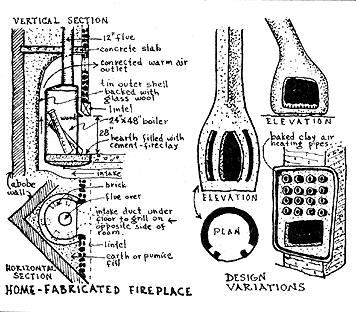 VERTICAL SECTION
12" flue
concrete slab
convected warm air
outlet
tin outer shell
backed with
glass wool
lintel
24"x48" boiler
28"
hearth filled with
cement-fireclay
intake
adobe
wall
brick
flue over
intake duct under
floor to grill on
opposite side of
room.
lintel
earth or pumice
fill
HORIZONTAL
SECTION
HOME-FABRICATED FIREPLACE
ELEVATION
PLAN
ELEVATION
baked clay air
heating pipes
DESIGN
VARIATIONS